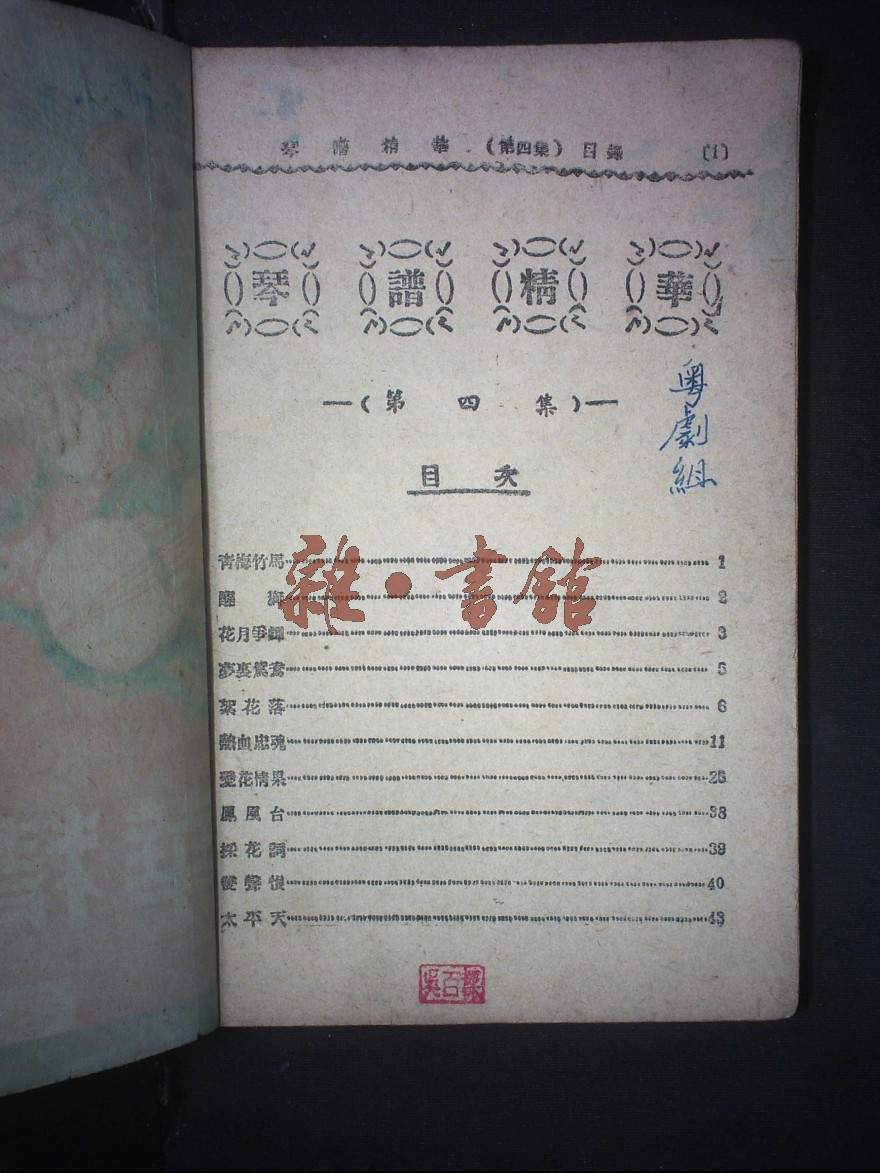 琴譜精華(第四集)目錄 〔1〕
琴譜精華
—(第四集)—
粵劇組
目次
青梅竹馬 1
醒獅 2
花月爭輝 3
夢裏鴛鴦 5
絮花落 6
熱血忠魂 11
愛花情果 25
鳳凰台 38
採花詞 39
雙聲恨 40
太平天 43
雜·書館